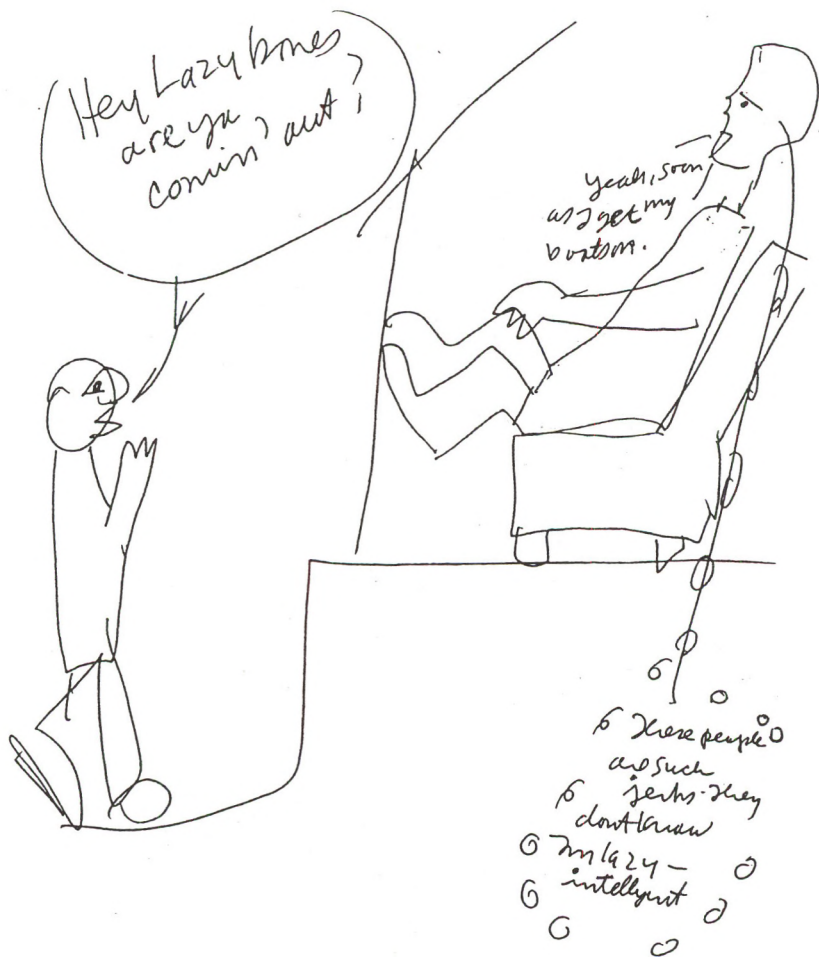 Hey Lazybones
are ya
comin' out?
yeah, soon
as I get my
boots on.
These people
are such
jerks. They
dont know
Im lazy –
intelligent